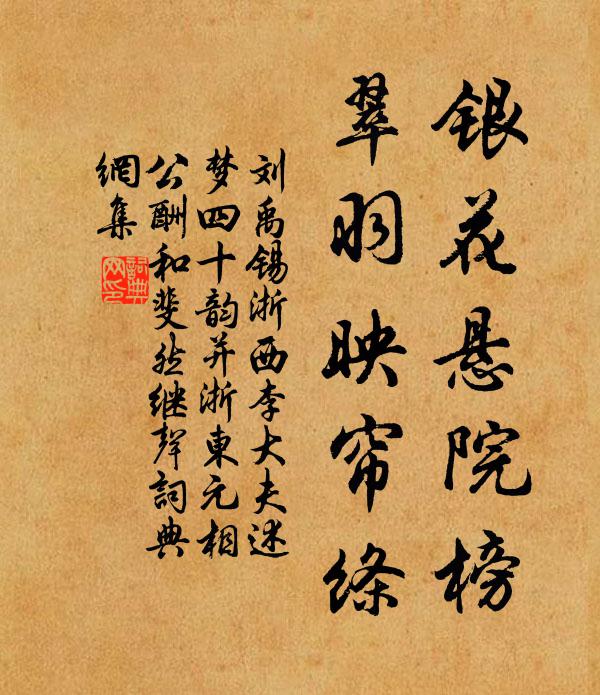 银花悬院榜
翠羽映帘绦
刘禹锡浙西李大夫述
梦四十韵并浙東元相
公酬和斐然继聲詞典
網集
詞典
网印